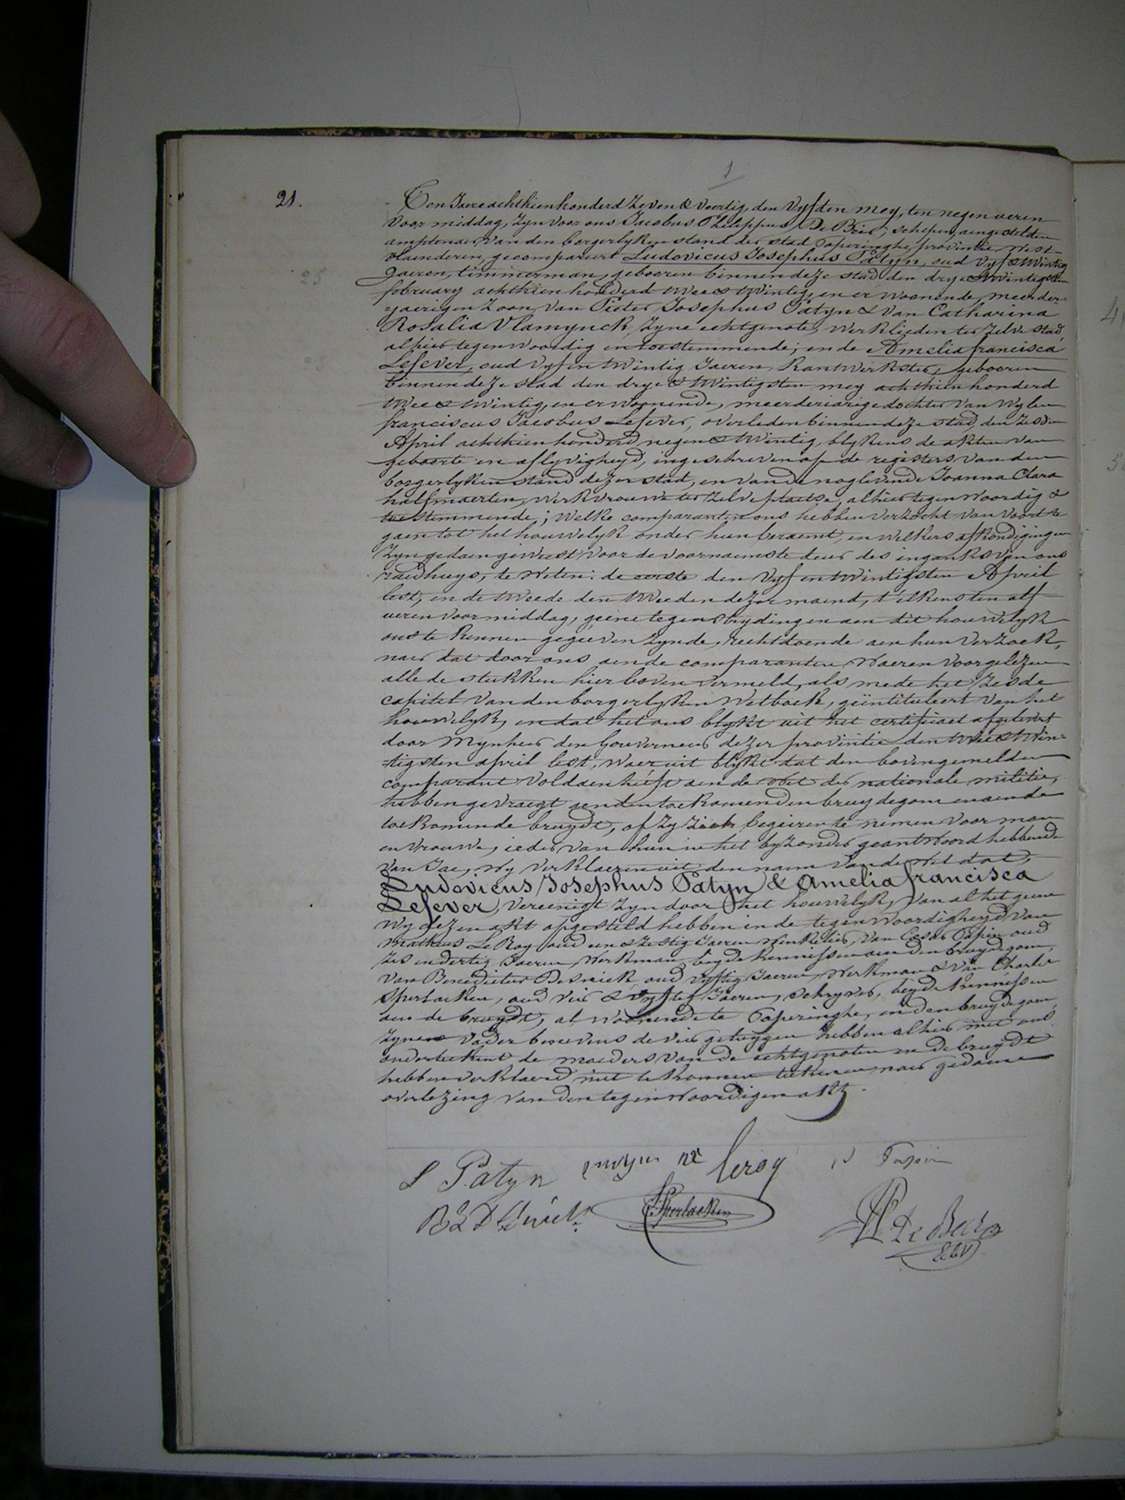 1
21.
Ten Jaere achthien honderd zeven & veertig, den vyfden mey, ten negen ueren
voormiddag, zyn voor ons Jacobus Philippus De Bries, schepen, aengestelden
amptenaer van den borgerlyken stand der stad Poperinghe, provintie West-
vlaenderen, gecompareert Ludovicus Josephus Patyn, oud vyf & twintig
Jaeren, timmerman, gebooren binnen deze stad den drye & twintigsten
february achthien honderd twee & twintig, en er woonende, meerder-
jaerigen zoon van Pieter Josephus Patyn & van Catharina
Rosalia Vlamynck, zyne echtgenote, werklieden ter zelve stad
alhier tegenwoordig en toestemmende; en de Amelia francisca
Lefever, oud vyf en twintig Jaeren, kantwerkster, gebooren
binnen deze stad den drye & twintigsten mey achthien honderd
twee & twintig, en er woonende, meerderjarige dochter van wylen
franciscus Jacobus Lefever, overleden binnen deze stad, den zesden
April achthien honderd negen & twintig, blykens de akten van
geboorte en aflyvigheyd, ingeschreven op de registers van den
borgerlyken stand dezer stad, en van de nog levende Joanna Clara
halfmaerten, werkvrouwe ter zelve plaetse, alhier tegenwoordig &
toestemmende; welke comparanten ons hebben verzocht van voord te
gaen tot het houwelyk onder hun beraemt, en welkers afkondigingen
zyn gedaen geweest voor de voornaemste deur des ingangs van ons
raedhuys, te weten: de eerste den vyf en twintigsten April
lest, en de tweede den tweeden dezer maend, t'elkens ten elf
ueren voormiddag, geene tegenstrydingen aen dit houwelyk
ons te kennen gegeeven zynde, recht doende aen hun verzoek,
naer dat door ons aen de comparanten waeren voorgelezen
alle de stukken hier boven vermeld, als mede het zesde
capitel van den borgerlyken Wetboek, geïntituleert van het
houwelyk, en dat het ons blykt uit het certificaet afgelevert
door Mynheer den Gouverneur dezer provintie den twee & twin-
tigsten april lest, waer uit blykt dat den bovengemelden
comparant voldaen heeft aen de wet der nationale militie,
hebben gevraegt aen den toekomenden bruydegom en aen de
toekomende bruydt, of zy zich begeeren te nemen voor man
en vrouwe, ieder van hun in het byzonder geantwoord hebbende
van Jae, wy verklaeren uit den naem van de wet dat
Ludovicus Josephus Patyn & Amelia francisca
Lefever, vereenigt zyn door het houwelyk, van al het geene
wy dezen akt opgesteld hebben in de tegenwoordigheyd van
Mathieus Le Roy oud een & zestig Jaeren winkelier, van Cesar Papin oud
zes en dertig Jaeren, werkman, beyde kennissen aen den bruydegom,
van Benedictus Desmick, oud vyftig Jaeren, werkman & van Charles
Sperlaeken, oud vier & vyftig Jaeren, schryver, beyde kennissen
aen de bruydt, al woonende te Poperinghe, en den bruydegom,
zynen vader benevens de vier getuygen hebben alhier met ons
onderteekent de moeders van de echtgenoten en de bruydt
hebben verklaerd niet te konnen teekenen naer gedaene
overlezing van den tegenwoordigen akt.
L Patyn
leroy
Sperlaeken